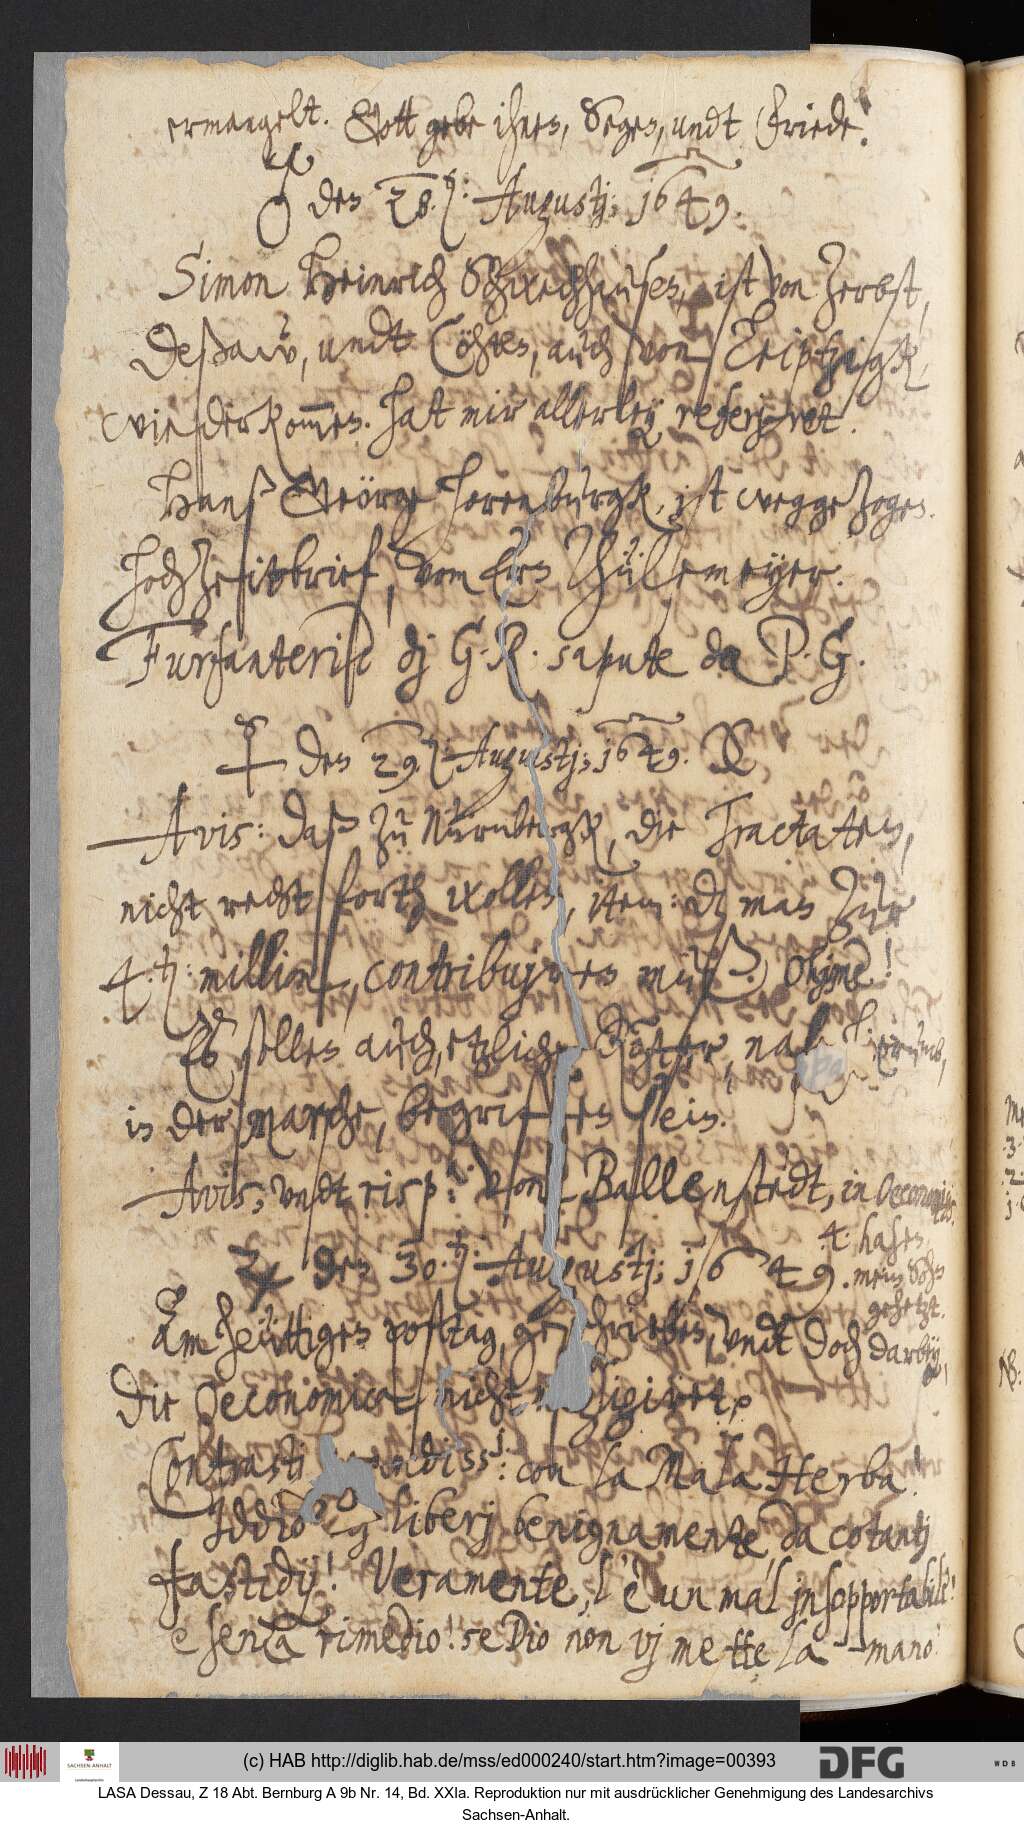 ermangelt. Gott gebe ihnen, Segen, undt Friede!
♂ den 28. Augustj; 1649.
Simon Heinrich Schwechhausen, ist von Zerbst,
Deßaw, undt Cöhten, auch von Leiptzigk,
wieder kommen. hat mir allerley referiret.
Hanß Geörge Hern burgk, ist weggezogen.
Hochzeitbrief, vom Ern Thülemeyer.
Furfanterise dj G. R. sapute da P. G.
☿ den 29. Augustj; 1649.
Avis: daß zu Nürnbergk, die Tractaten,
nicht recht forth wollen, item: daß man zur
4. million, contribuiren muß? Ohjme!
Es sollen auch, etzliche
in der Marche, begriffen sein.
Avis, undt risp: von Ballenstedt, in Oeconomijs.
♃ den 30. Augustj; 1649.
4. hasen
mein Sohn
gehetzt.
Am heüttigen posttag, geschrieben, undt doch darbey,
die Oeconomica nicht negligiret,
Contrasti grandiss: con la Mala Herba!
Iddio liberj benignamente da cotantj
fastidij! Veramente, l'è un mal jnsopportabile!
e senza rimedio! se Dio non vj mette la mano!
(c) HAB http://diglib.hab.de/mss/ed000240/start.htm?image=00393
SACHSEN-ANHALT
DFG
WDB
LASA Dessau, Z 18 Abt. Bernburg A 9b Nr. 14, Bd. XXIa. Reproduktion nur mit ausdrücklicher Genehmigung des Landesarchivs
Sachsen-Anhalt.